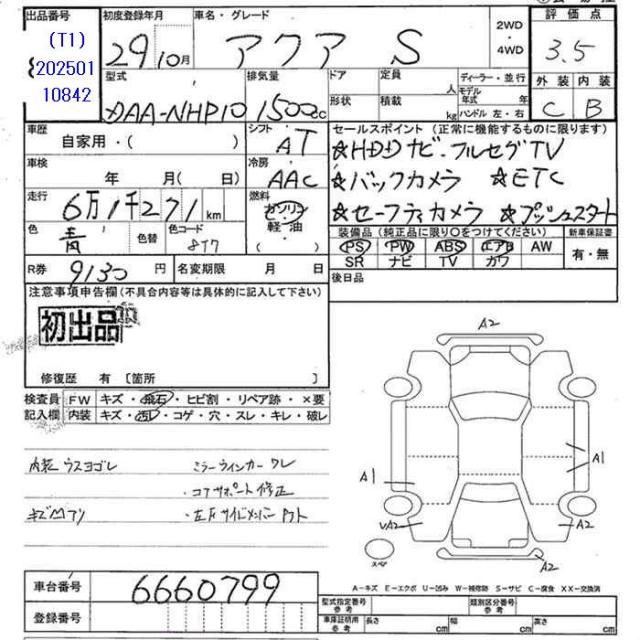 出品番号 初度登録年月 車名・グレード 評価点
(T1)
202501
10842
29年10月 アクア S 2WD・4WD 3.5
型式 排気量 ドア 定員 人 ディーラー・並行 外装 内装
DAA-NHP10 1500cc 形状 積載 kg モデル年式 年 ハンドル 左・右 C B
車歴 シフト セールスポイント (正常に機能するものに限ります)
自家用・( ) AT ☆HDDナビ・フルセグTV
車検 冷房
年 月( ) AAC ☆バックカメラ ☆ETC
走行 燃料
6万1千271km ガソリン・軽油 ☆セーフティカメラ ☆プッシュスタート
色 色替 色コード 装備品 (純正品に限り○をつけてください) 新車保証書
青 8T7 PS PW ABS エアB AW 有・無
SR ナビ TV カワ
R券 9130円 名変期限 月 日 後日品
注意事項申告欄(不具合内容等は具体的に記入して下さい)
初出品
修復歴 有 〔箇所 〕
検査員 FW キズ・飛石・ヒビ割・リペア跡・×要
記入欄 内装 キズ・凹・コゲ・穴・スレ・キレ・破レ
内装ウスヨゴレ ミラーウインカーワレ
・コアサポート修正
キズ凹アリ
A2
A1 A1
A2 A2
スペア A2
A-キズ E-エクボ U-凹み W-補修跡 S-サビ C-腐食 XX-交換済
車台番号 6660799
型式指定番号 参考 類別区分番号 参考
登録番号 車庫証明用 参考 長さ cm 幅 cm 高さ cm